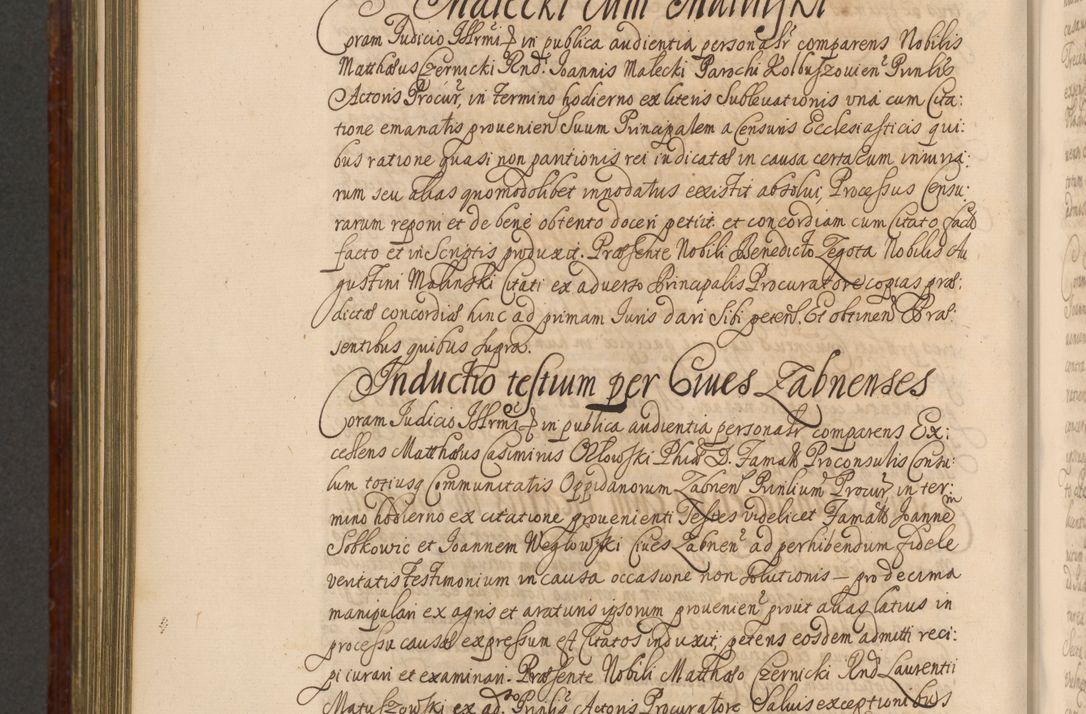 Małecki cum Maliński
Coram Judicio Illrmi D in publica audientia personalr comparens Nobilis
Matthæus Czernicki Rnd. Joannis Małecki Parochi Kolbuszovien Prinlis
Actoris Procur, in termino hodierno ex literis Sublevationis una cum Cita:
tione emanatis provenien Suum Principalem a Censuris Ecclesiasticis qui:
bus ratione quasi non paritionis rei indicatæ in causa certarum iniuria:
rum seu alias quomodolibet innodatus exstitit absolui, Processus Censu:
rarum reponi et de bene obtento doceri petiit. et concordiam cum Citato facto
facto et in Scriptis produxit. Præsente Nobili Benedicto Zegota Nobilis Au
gustini Maliński Citati ex adverso Principalis Procuratore copias præ:
dictæ concordiæ hinc ad primam Juris dari Sibi peten. Et obtinen Præ:
sentibus quibus supra.
Inductio testium per Cives Zabnenses
Coram Judicio Illrmi D in publica audientia personalr comparens Ex:
cellens Matthæus Casimirus Orłowski Phiæ D. Famati Proconsulis Consu:
lum totiusq Communitatis Oppidanorum Zabnen Prinlium Procur, in ter:
mino hodierno ex citatione provenienti Testes videlicet Famatt Joannem
Sobkowic et Joannem Węglowski Cives Zabnen ad perhibendum fidele
veritatis testimonium in causa occasione non Solutionis – pro decima
manipulari ex agris et araturis ipsorum provenien prout alias latius in
processu causæ expressum est Citatos induxit, petens eosdem admitti reci:
pi iurari et examinari. Præsente Nobili Matthæo Czernicki Rnd Laurentii
Matuszowski ex adso Prinlis Actoris Procuratore Salvis exceptionibus